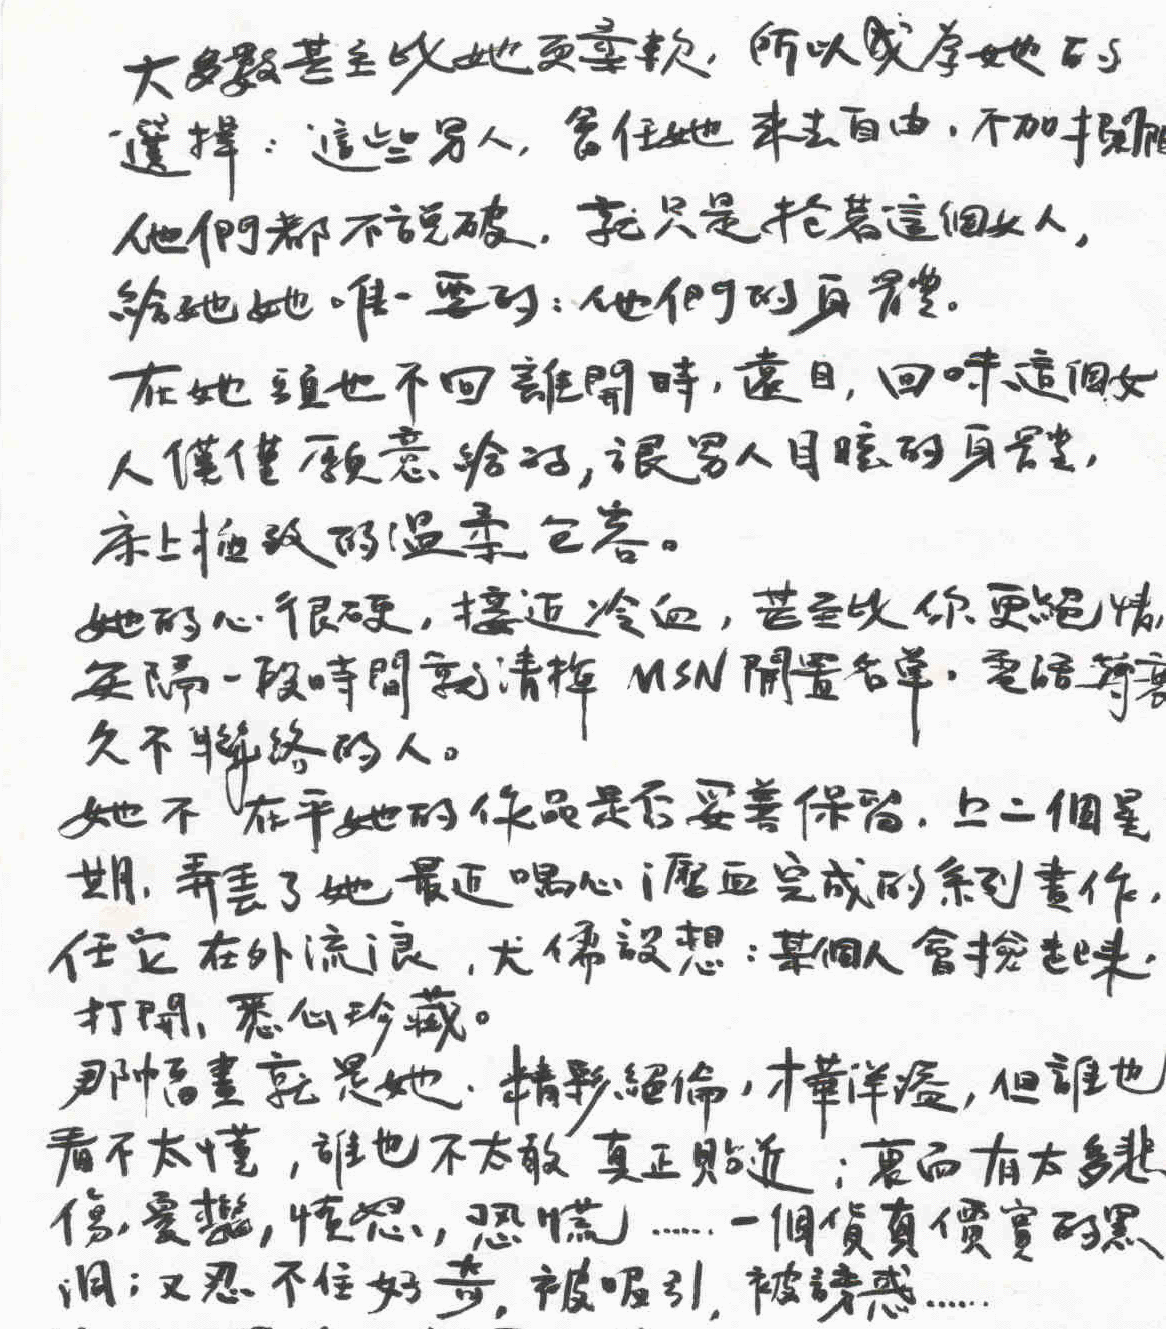 大多數甚至比她更柔軟，所以成為她的
選擇：這些男人，會任她來去自由，不加探問
他們都不說破，就只是抱著這個女人，
給她她唯一要的：他們的身體。
在她頭也不回離開時，遠目，回味這個女
人僅僅願意給的，讓男人目眩的身體，
床上極致的溫柔包容。
她的心很硬，接近冷血，甚至比你更絕情，
每隔一段時間就清掉MSN閒置名單，電話簿裏
久不聯絡的人。
她不在乎她的作品是否妥善保留，上二個星
期，弄丟了她最近嘔心瀝血完成的系列畫作，
任它在外流浪，尤儒設想：某個人會撿起來，
打開，悉心珍藏。
那幅畫就是她，精彩絕倫，才華洋溢，但誰也
看不太懂，誰也不太敢真正貼近；裏面有太多悲
傷，愛戀，憤怒，恐慌……一個貨真價實的黑
洞；又忍不住好奇，被吸引，被誘惑……